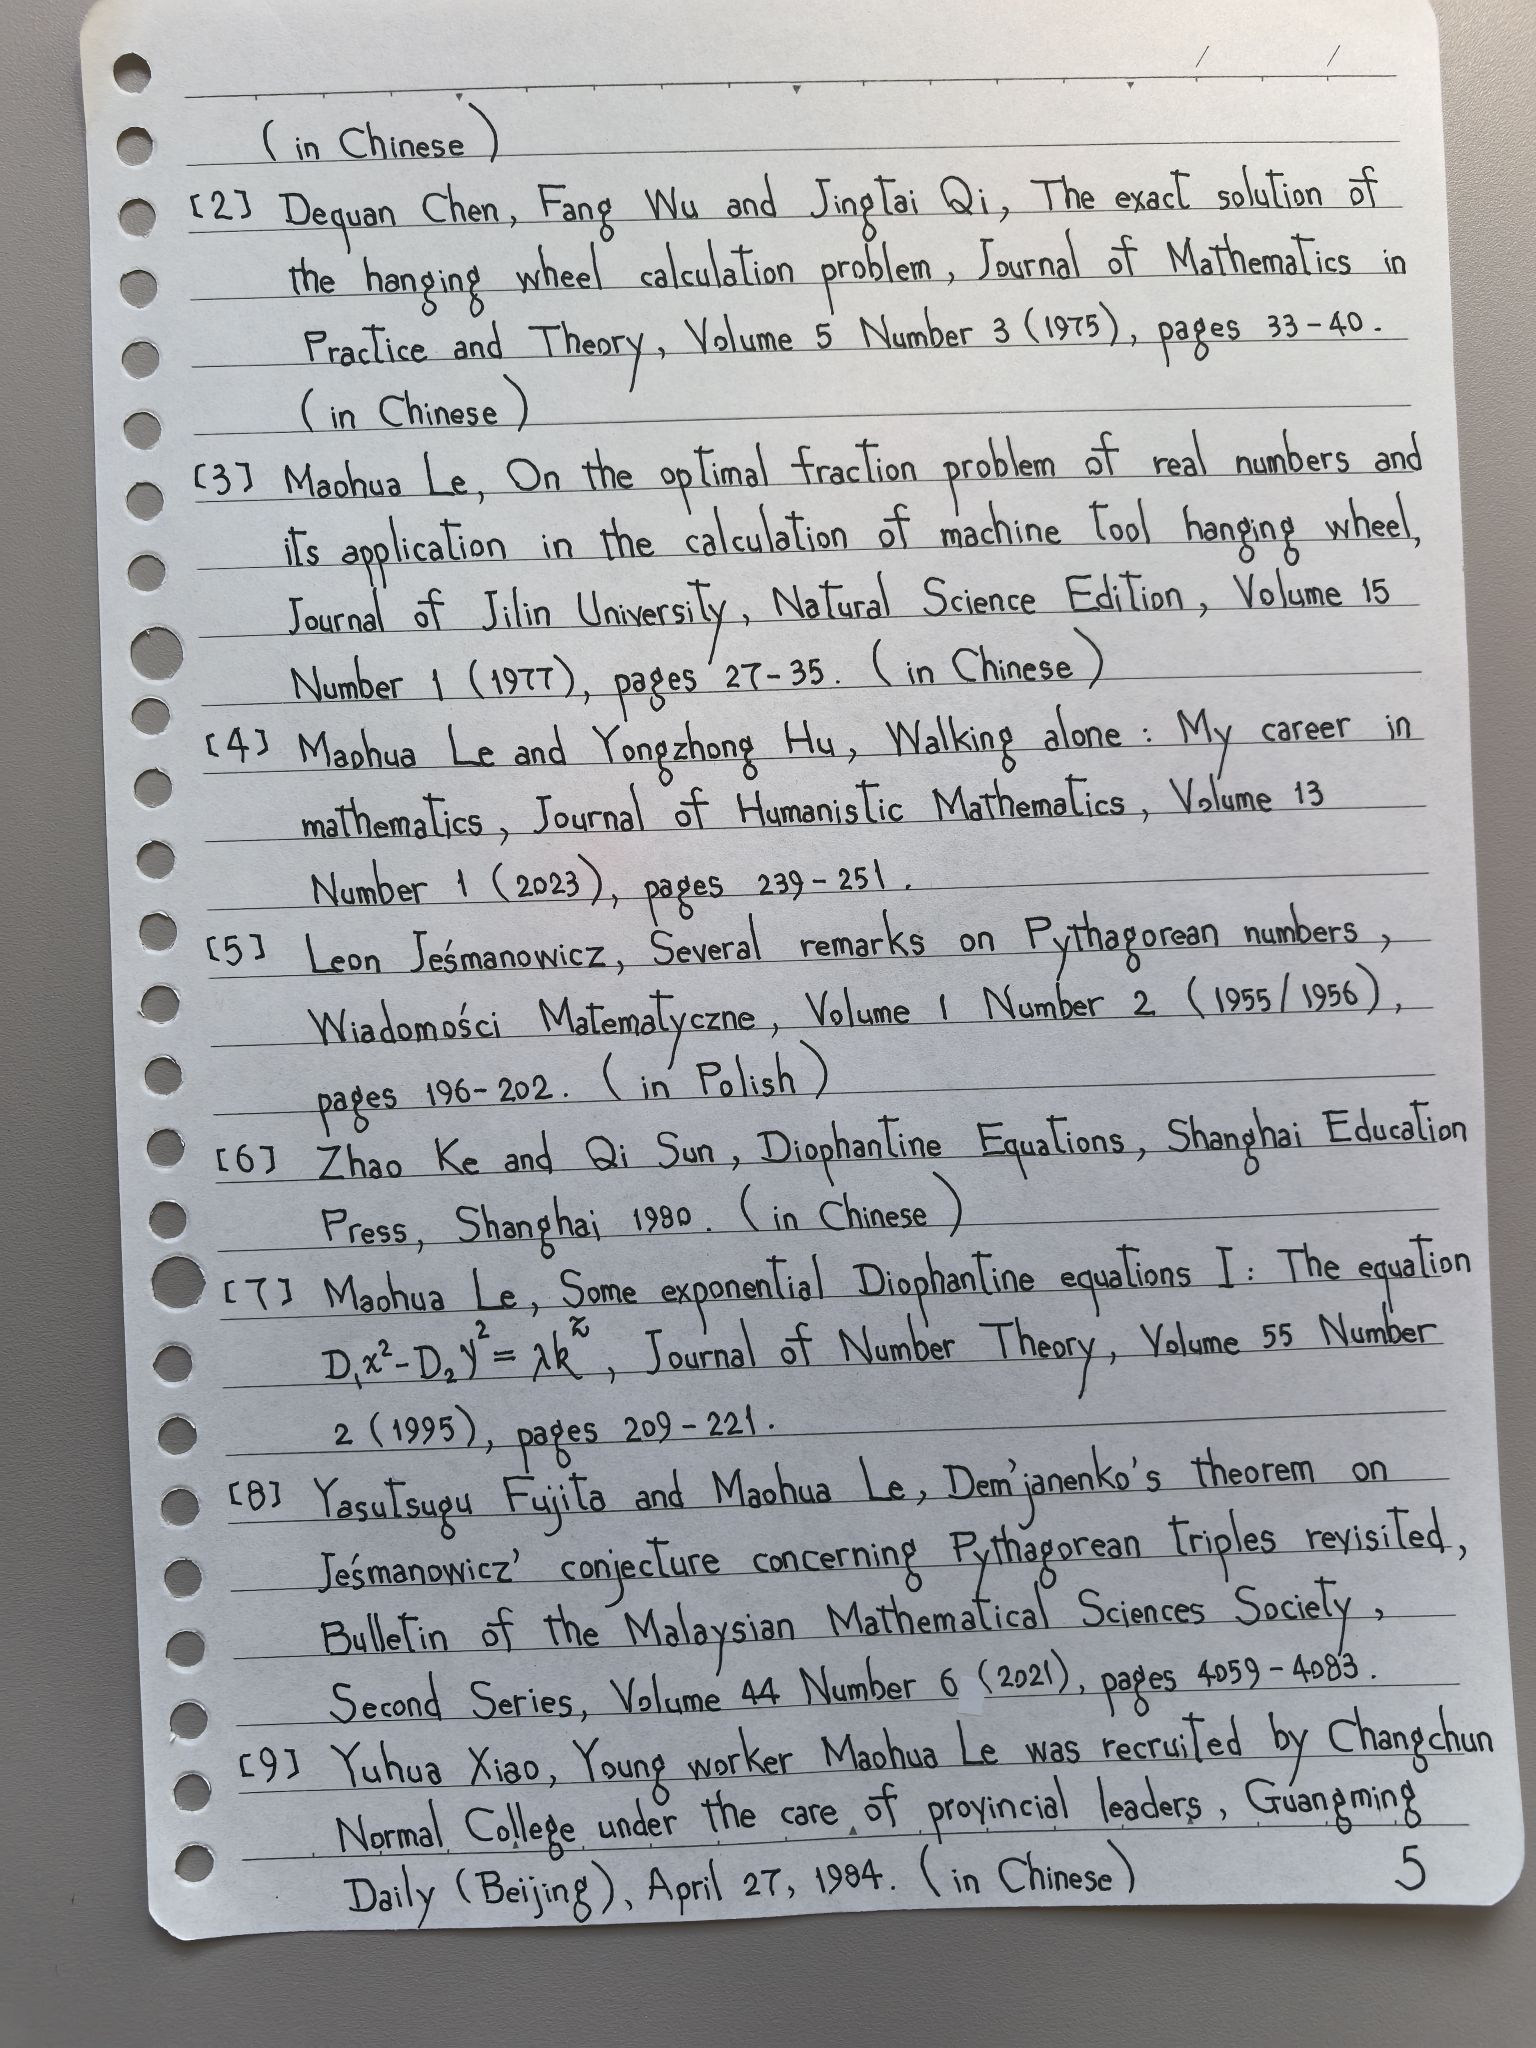 (in Chinese)
[2] Dequan Chen, Fang Wu and Jingtai Qi, The exact solution of
the hanging wheel calculation problem, Journal of Mathematics in
Practice and Theory, Volume 5 Number 3 (1975), pages 33-40.
(in Chinese)
[3] Maohua Le, On the optimal fraction problem of real numbers and
its application in the calculation of machine tool hanging wheel,
Journal of Jilin University, Natural Science Edition, Volume 15
Number 1 (1977), pages 27-35. (in Chinese)
[4] Maohua Le and Yongzhong Hu, Walking alone: My career in
mathematics, Journal of Humanistic Mathematics, Volume 13
Number 1 (2023), pages 239-251.
[5] Leon Jeśmanowicz, Several remarks on Pythagorean numbers,
Wiadomości Matematyczne, Volume 1 Number 2 (1955/1956),
pages 196-202. (in Polish)
[6] Zhao Ke and Qi Sun, Diophantine Equations, Shanghai Education
Press, Shanghai 1980. (in Chinese)
[7] Maohua Le, Some exponential Diophantine equations I: The equation
D₁x²-D₂y²=λk^z, Journal of Number Theory, Volume 55 Number
2 (1995), pages 209-221.
[8] Yasutsugu Fujita and Maohua Le, Dem'janenko's theorem on
Jeśmanowicz' conjecture concerning Pythagorean triples revisited,
Bulletin of the Malaysian Mathematical Sciences Society,
Second Series, Volume 44 Number 6 (2021), pages 4059-4083.
[9] Yuhua Xiao, Young worker Maohua Le was recruited by Changchun
Normal College under the care of provincial leaders, Guangming
Daily (Beijing), April 27, 1984. (in Chinese)
5